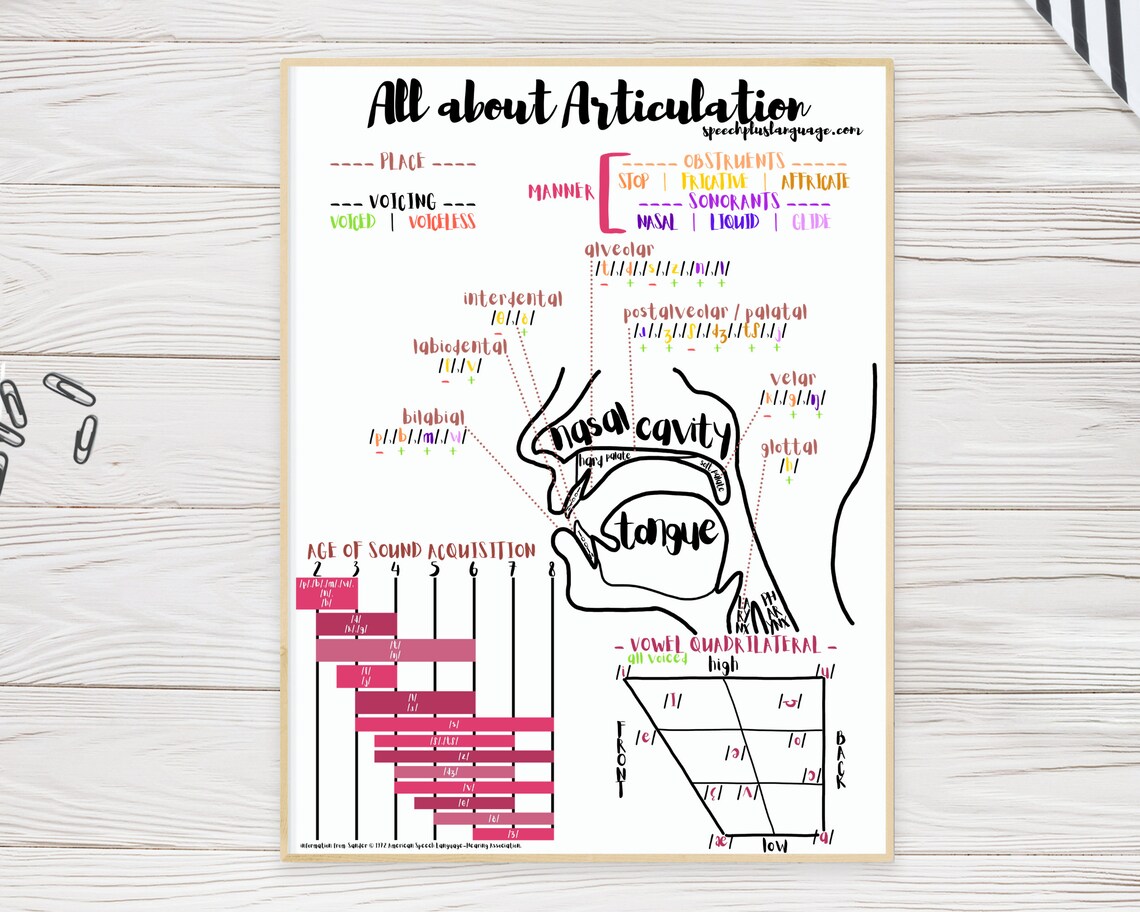 All about Articulation
speechpluslanguage.com
---- PLACE ----
--- VOICING ---
VOICED | VOICELESS
MANNER
----- OBSTRUENTS -----
STOP | FRICATIVE | AFFRICATE
---- SONORANTS ----
NASAL | LIQUID | GLIDE
alveolar
/t/,/d/,/s/,/z/,/n/,/l/
- + - + + +
interdental
/θ/,/ð/
- +
postalveolar / palatal
/ɹ/,/ʒ/,/ʃ/,/dʒ/,/tʃ/,/j/
+ + - + + +
labiodental
/f/,/v/
- +
velar
/k/,/g/,/ŋ/
- + +
bilabial
/p/,/b/,/m/,/w/
- + + +
glottal
/h/
+
nasal cavity
hard palate
soft palate
tongue
LARYNX
PHARYNX
AGE OF SOUND ACQUISITION
2 3 4 5 6 7 8
/p/,/b/,/m/,/w/,
/n/,
/h/
/d/
/k/,/g/
/t/
/ŋ/
/f/
/j/
/s/
/z/
/dʒ/
/v/
/θ/
/ð/
/ʒ/
Information from Sander © 1972 American Speech-Language-Hearing Association.
- VOWEL QUADRILATERAL -
all voiced
high
/i/
/u/
/I/
/ʊ/
FRONT
/e/
/ə/
/o/
BACK
/ɔ/
/ʌ/
/æ/
low
/a/